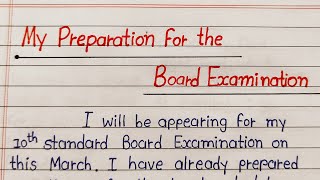 My Preparation for the
Board Examination
I will be appearing for my
10th standard Board Examination on
this March. I have already prepared